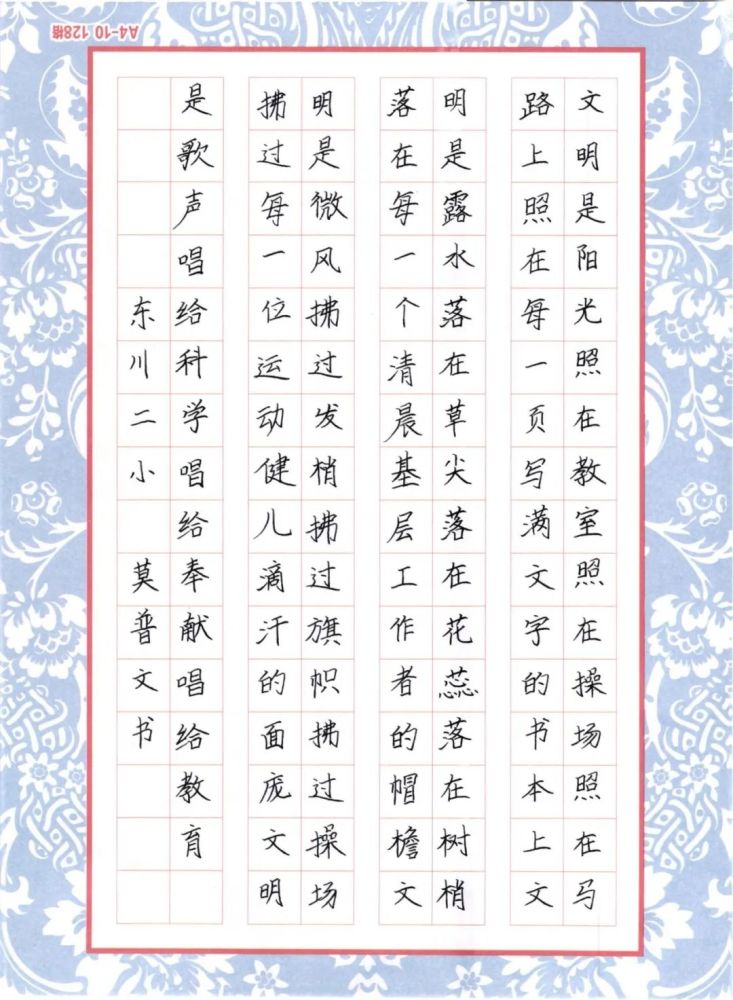 A4-10 128格
文明是阳光照在教室照在操场照在马
路上照在每一页写满文字的书本上文
明是露水落在草尖落在花蕊落在树梢
落在每一个清晨基层工作者的帽檐文
明是微风拂过发梢拂过旗帜拂过操场
拂过每一位运动健儿滴汗的面庞文明
是歌声唱给科学唱给奉献唱给教育
东川二小 莫普文书